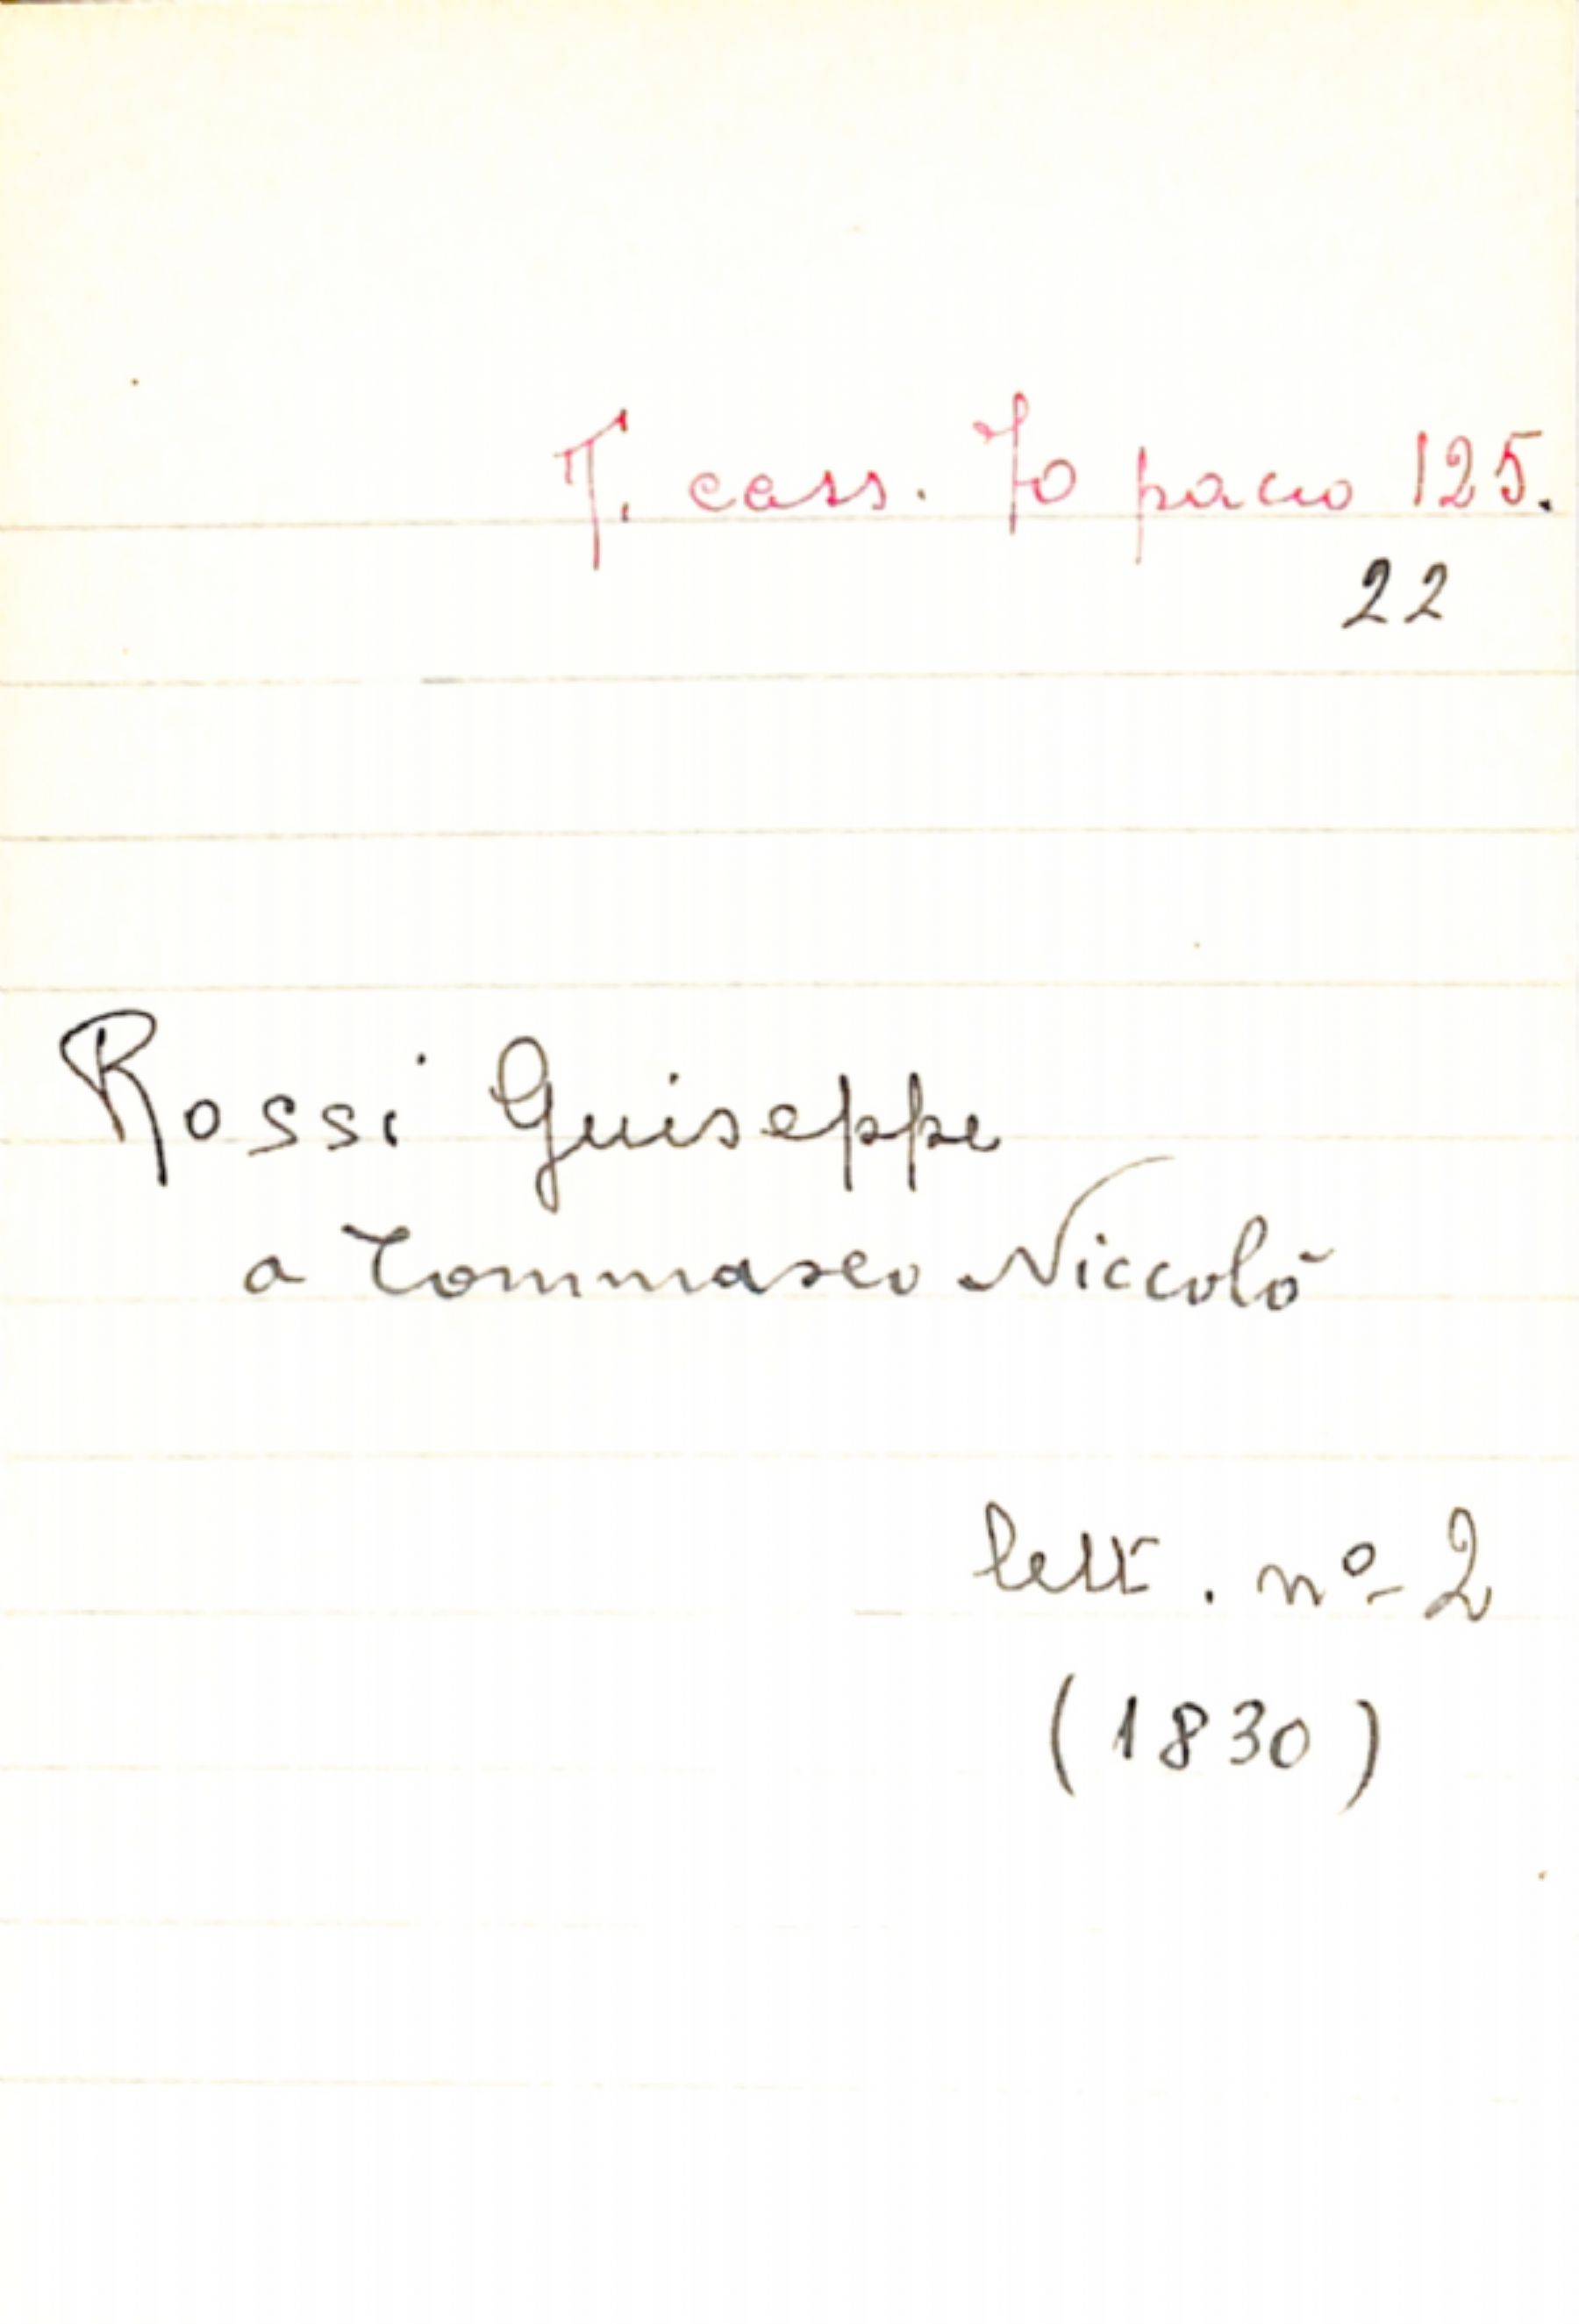 T. cass. 70 pacco 125.
22
Rossi Giuseppe
a Tommaseo Niccolò
lett. nº 2
(1830)